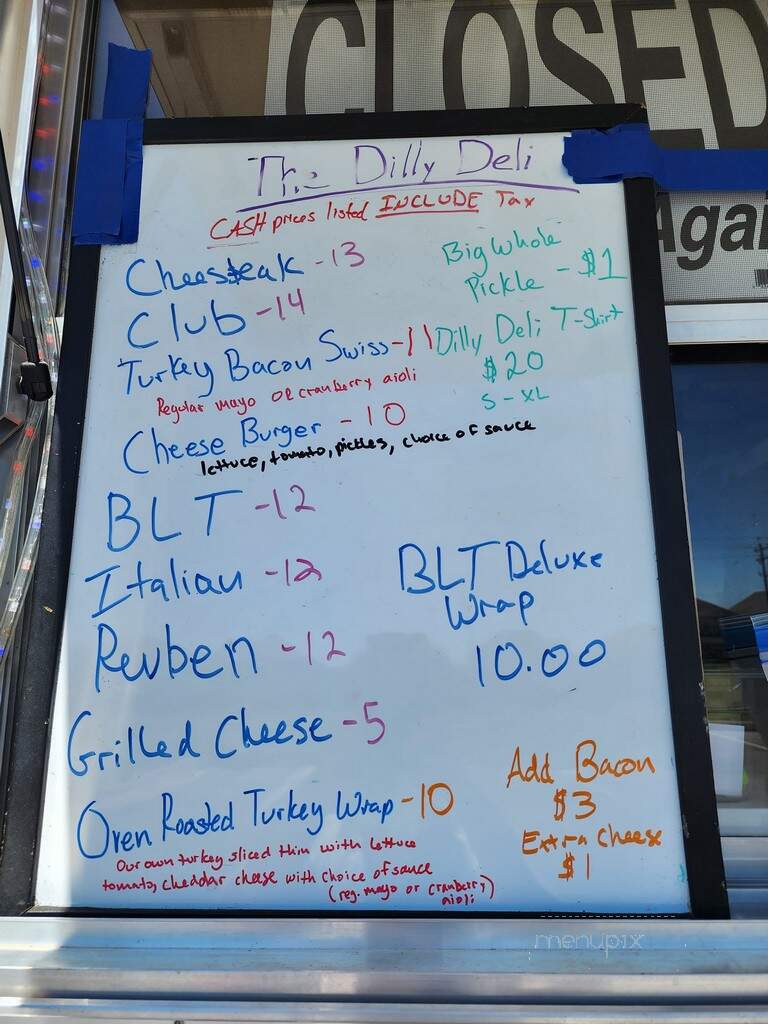 CLOSED
Agai
The Dilly Deli
CASH prices listed INCLUDE Tax
Cheesteak - 13
Club - 14
Turkey Bacon Swiss - 11
Regular mayo or cranberry aioli
Cheese Burger - 10
lettuce, tomato, pickles, choice of sauce
BLT - 12
Italian - 12
Reuben - 12
Grilled Cheese - 5
Oven Roasted Turkey Wrap - 10
Our own turkey sliced thin with lettuce
tomato, cheddar cheese with choice of sauce
(reg. mayo or cranberry)
aioli
Big Whole
Pickle - $1
Dilly Deli T-Shirt
$20
S - XL
BLT Deluxe
Wrap
10.00
Add Bacon
$3
Extra Cheese
$1
menupix